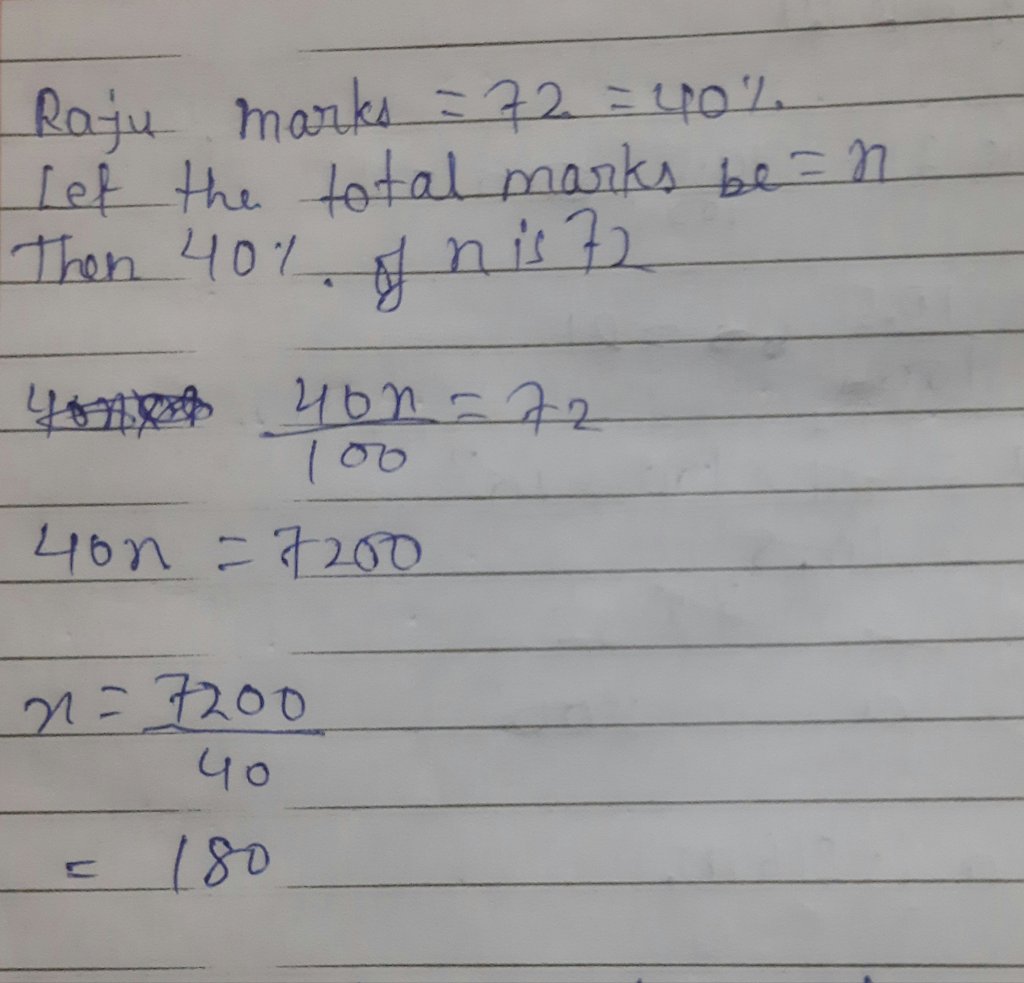 Raju marks = 72 = 40%.
Let the total marks be = n
Then 40%. of n is 72
40n = 72
100
40n = 7200
n = 7200
40
= 180